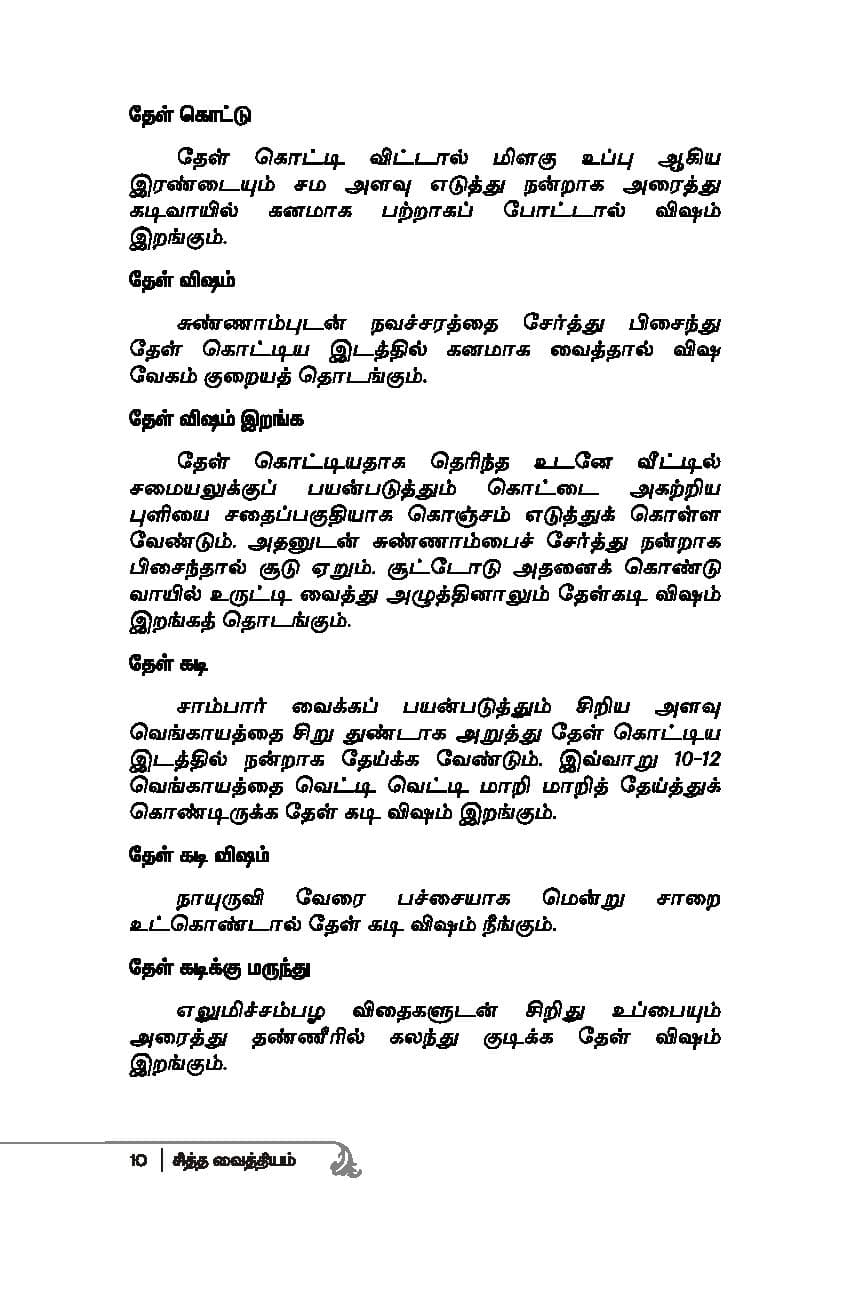 தேள் கொட்டு
தேள் கொட்டி விட்டால் மிளகு உப்பு ஆகிய
இரண்டையும் சம அளவு எடுத்து நன்றாக அரைத்து
கடிவாயில் கனமாக பற்றாகப் போட்டால் விஷம்
இறங்கும்.
தேள் விஷம்
சுண்ணாம்புடன் நவச்சரத்தை சேர்த்து பிசைந்து
தேள் கொட்டிய இடத்தில் கனமாக வைத்தால் விஷ
வேகம் குறையத் தொடங்கும்.
தேள் விஷம் இறங்க
தேள் கொட்டியதாக தெரிந்த உடனே வீட்டில்
சமையலுக்குப் பயன்படுத்தும் கொட்டை அகற்றிய
புளியை சதைப்பகுதியாக கொஞ்சம் எடுத்துக் கொள்ள
வேண்டும். அதனுடன் சுண்ணாம்பைச் சேர்த்து நன்றாக
பிசைந்தால் சூடு ஏறும். சூட்டோடு அதனைக் கொண்டு
வாயில் உருட்டி வைத்து அழுத்தினாலும் தேள்கடி விஷம்
இறங்கத் தொடங்கும்.
தேள் கடி
சாம்பார் வைக்கப் பயன்படுத்தும் சிறிய அளவு
வெங்காயத்தை சிறு துண்டாக அறுத்து தேள் கொட்டிய
இடத்தில் நன்றாக தேய்க்க வேண்டும். இவ்வாறு 10-12
வெங்காயத்தை வெட்டி வெட்டி மாறி மாறித் தேய்த்துக்
கொண்டிருக்க தேள் கடி விஷம் இறங்கும்.
தேள் கடி விஷம்
நாயுருவி வேரை பச்சையாக மென்று சாறை
உட்கொண்டால் தேள் கடி விஷம் நீங்கும்.
தேள் கடிக்கு மருந்து
எலுமிச்சம்பழ விதைகளுடன் சிறிது உப்பையும்
அரைத்து தண்ணீரில் கலந்து குடிக்க தேள் விஷம்
இறங்கும்.
10 | சித்த வைத்தியம்